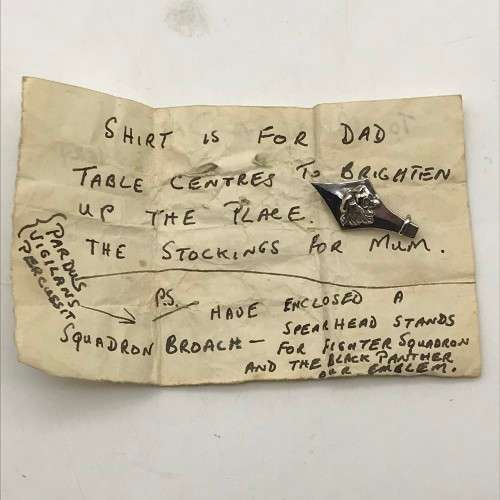 SHIRT IS FOR DAD
TABLE CENTRES TO BRIGHTEN
UP THE PLACE.
THE STOCKINGS FOR MUM.
PARDUS
VIGILANS
PERCUSSIT
PS. HAVE ENCLOSED A
SQUADRON BROACH — SPEARHEAD STANDS
FOR FIGHTER SQUADRON
AND THE BLACK PANTHER
OUR EMBLEM.